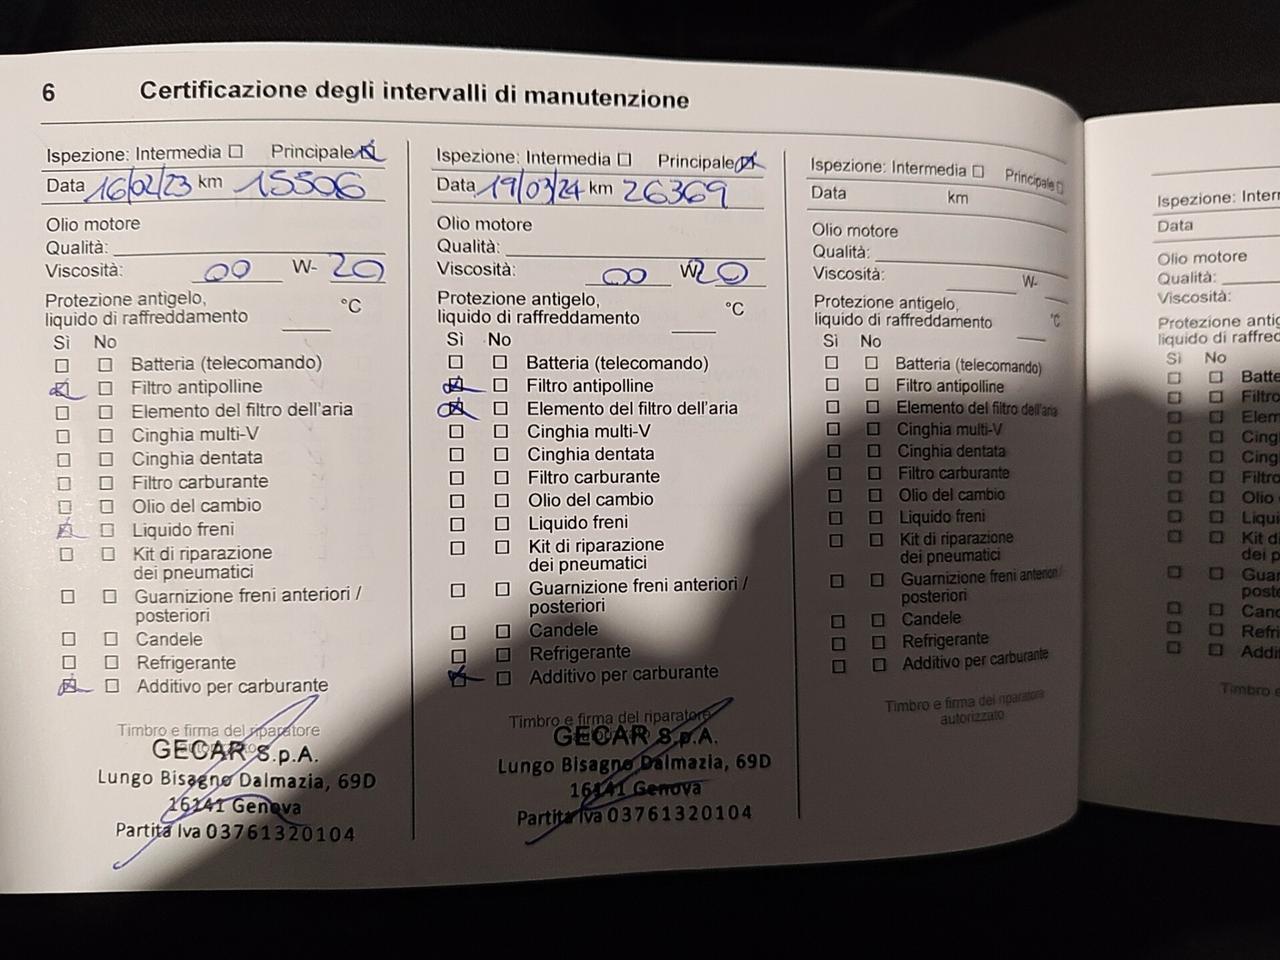 6
Certificazione degli intervalli di manutenzione
Ispezione: Intermedia ☐ Principale ☒
Data 16/02/23 km 15506
Olio motore
Qualità:
Viscosità: 00 W- 20
Protezione antigelo,
liquido di raffreddamento °C
Sì No
Batteria (telecomando)
Filtro antipolline
Elemento del filtro dell'aria
Cinghia multi-V
Cinghia dentata
Filtro carburante
Olio del cambio
Liquido freni
Kit di riparazione
dei pneumatici
Guarnizione freni anteriori /
posteriori
Candele
Refrigerante
Additivo per carburante
Timbro e firma del riparatore
GECAR S.p.A.
Lungo Bisagno Dalmazia, 69D
16141 Genova
Partita Iva 03761320104
Ispezione: Intermedia ☐ Principale ☒
Data 19/03/24 km 26369
Olio motore
Qualità:
Viscosità: 00 W- 20
Protezione antigelo,
liquido di raffreddamento °C
Sì No
Batteria (telecomando)
Filtro antipolline
Elemento del filtro dell'aria
Cinghia multi-V
Cinghia dentata
Filtro carburante
Olio del cambio
Liquido freni
Kit di riparazione
dei pneumatici
Guarnizione freni anteriori /
posteriori
Candele
Refrigerante
Additivo per carburante
Timbro e firma del riparatore
GECAR S.p.A.
Lungo Bisagno Dalmazia, 69D
16141 Genova
Partita Iva 03761320104
Ispezione: Intermedia ☐ Principale ☐
Data km
Olio motore
Qualità:
Viscosità: W-
Protezione antigelo,
liquido di raffreddamento °C
Sì No
Batteria (telecomando)
Filtro antipolline
Elemento del filtro dell'aria
Cinghia multi-V
Cinghia dentata
Filtro carburante
Olio del cambio
Liquido freni
Kit di riparazione
dei pneumatici
Guarnizione freni anteriori /
posteriori
Candele
Refrigerante
Additivo per carburante
Timbro e firma del riparatore
autorizzato
Ispezione: Inter
Data
Olio motore
Qualità:
Viscosità:
Protezione antig
liquido di raffred
Sì No
Batte
Filtro
Elem
Cing
Cing
Filtro
Olio
Liqui
Kit d
dei p
Guar
poste
Cand
Refri
Addi
Timbro e